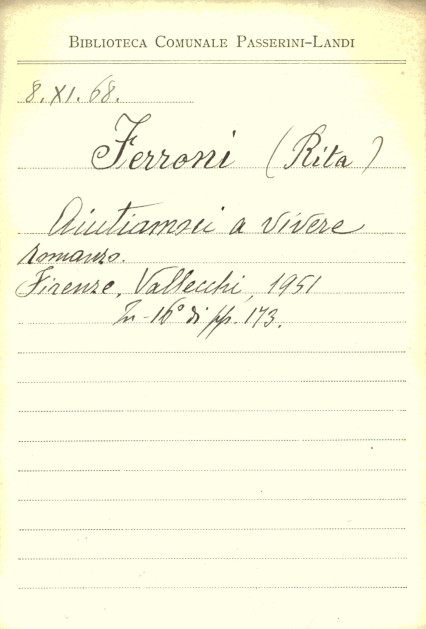 BIBLIOTECA COMUNALE PASSERINI-LANDI
8. XI. 68.
Ferroni (Rita)
Aiutiamoci a vivere
romanzo.
Firenze, Vallecchi, 1951
In-16° di pp. 173.